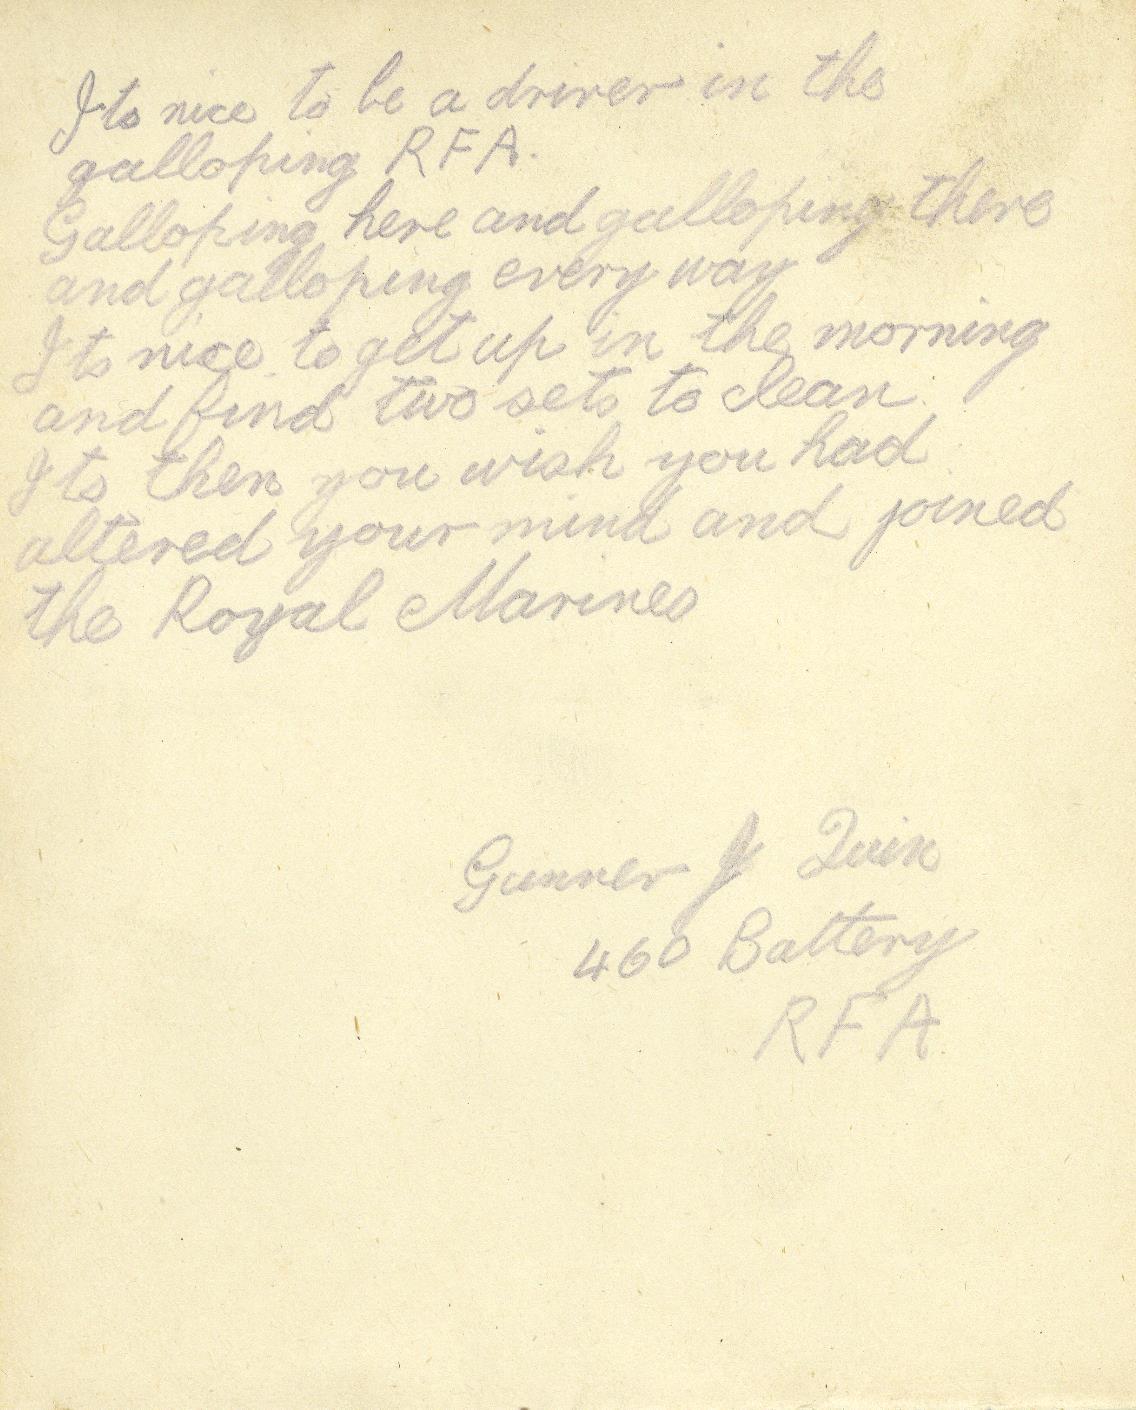 Its nice to be a driver in the
galloping RFA.
Galloping here and galloping there
and galloping every way
Its nice to get up in the morning
and find two sets to clean.
Its then you wish you had
altered your mind and joined
the Royal Marines
Gunner J Quin
460 Battery
RFA.